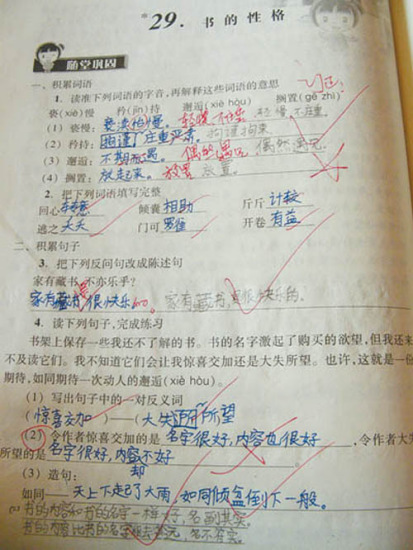 *29. 书的性格
随堂巩固
一、积累词语
1. 读准下列词语的字音，再解释这些词语的意思
亵(xiè)慢 矜(jīn)持 邂逅(xiè hòu) 搁置(gē zhì)
(1) 亵慢: 轻慢,不庄重。
(2) 矜持: 拘谨 庄重严肃。 拘谨拘束。
(3) 邂逅: 不期而遇。 偶然遇见 偶然遇见。
(4) 搁置: 放起来。 放置 放置。
2. 把下列词语填写完整
回心转意 倾囊相助 斤斤计较
逃之夭夭 门可罗雀 开卷有益
二、积累句子
3. 把下列反问句改成陈述句
家有藏书,不亦乐乎?
家有藏书 很快乐 家有藏书,是很快乐的。
4. 读下列句子,完成练习
书架上保存一些我还不了解的书。书的名字激起了购买的欲望,但我还来
不及读它们。我不知道它们会让我惊喜交加还是大失所望。也许,这就是一份
期待,如同期待一次动人的邂逅(xiè hòu)。
(1) 写出句子中的一对反义词
(惊喜交加)——(大失所望)
(2) 令作者惊喜交加的是 名字很好,内容也很好 ,令作者大失
所望的是 名字很好,内容却不好
(3) 造句:
如同——天上下起了大雨,如同倾盆倒下一般。
书的内容和书的名字一样好,名副其实。